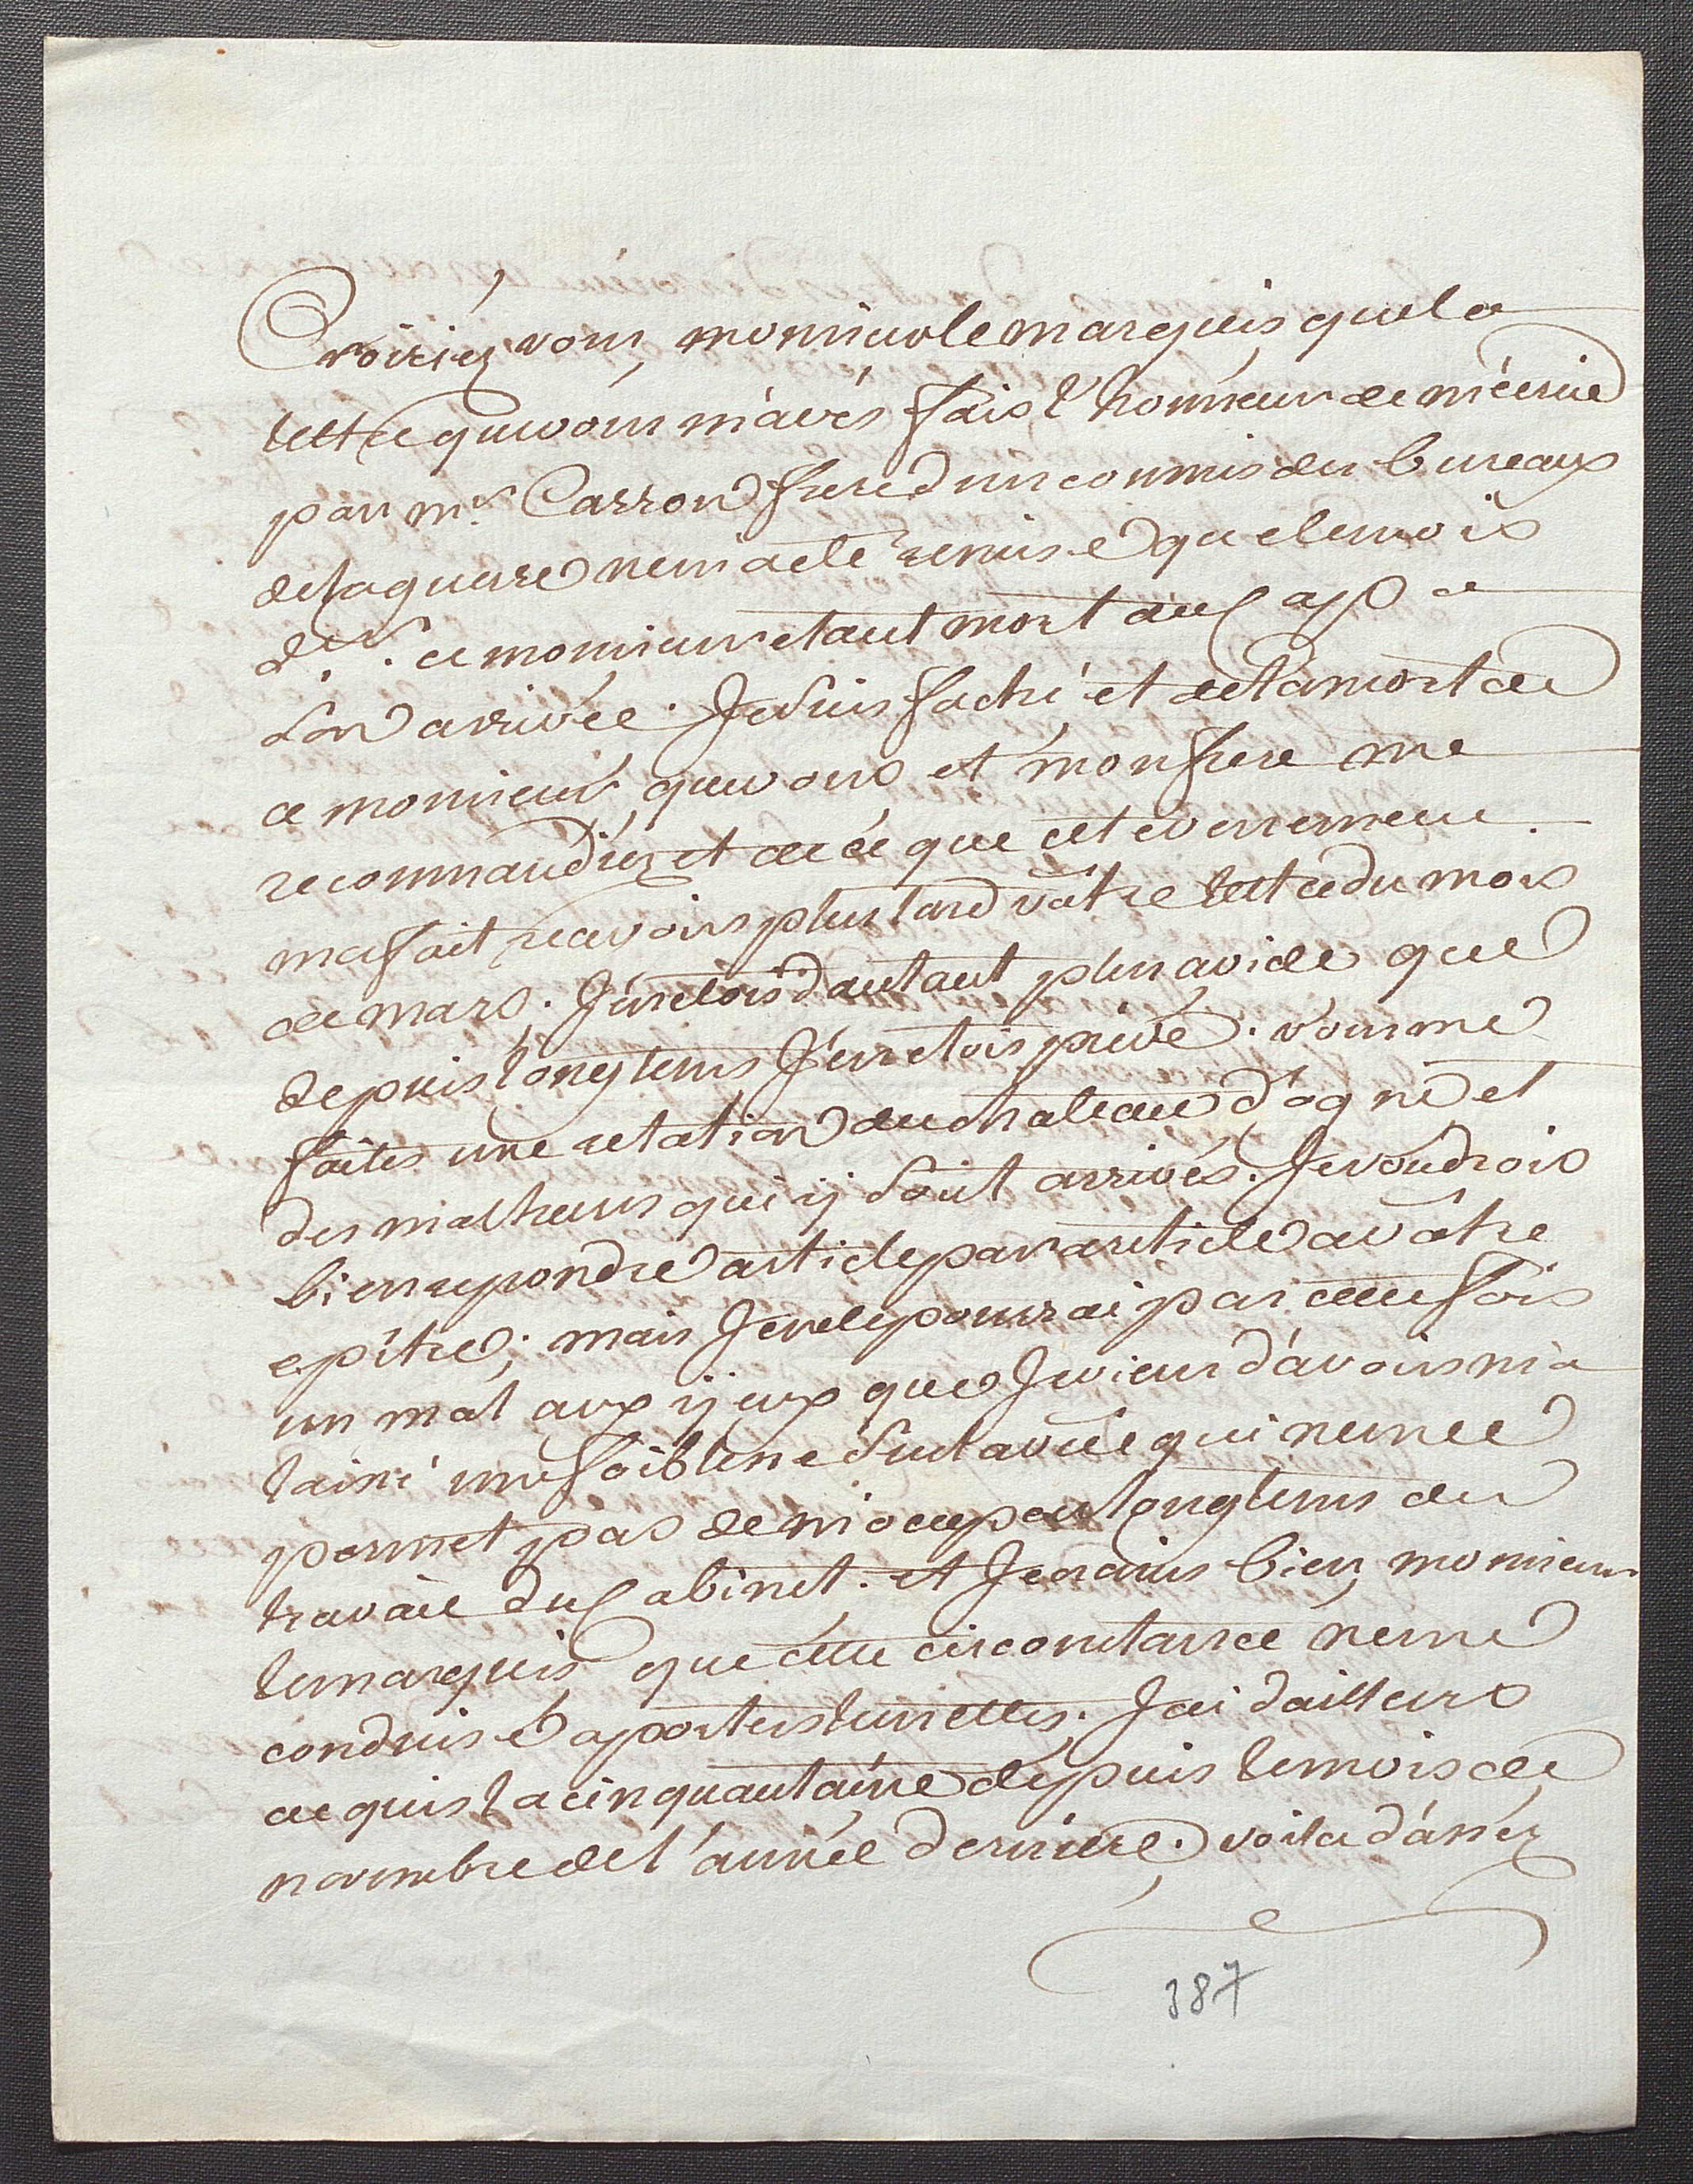 Croiriez vous, monsieur le marquis que la
lettre que vous m'avés fais l'honneur de m'écrire
par mr. Carron frere d'un commis des bureaux
de la guerre ne m'a été remise que le mois
der. ce monsieur etant mort au Cap a
son arrivée. Je suis faché et de la mort de
ce monsieur que vous et mon frere me
recommandiez et de ce que cet evenement
m'a fait recevoir plus tard vôtre lettre du mois
de mars. J'en etois d'autant plus avide que
depuis longtems J'en etois privé. vous me
faites une relation du chateau d'ogné et
des malheurs qui ij sont arrivés. Je voudrois
bien repondre article par article a vôtre
epître; mais Je ne le pourrai pas cette fois
un mal aux ijeux que Je viens d'avoir m'a
laissé une foiblesse sur la vüe qui ne me
permet pas de m'occuper longtems du
travail du Cabinet. et Je crains bien, monsieur
le marquis que cette circonstance ne me
conduise a porter lunettes. J'ai d'ailleurs
acquis la cinquantaine depuis le mois de
novembre de l'année derniere. voila d'assez
387